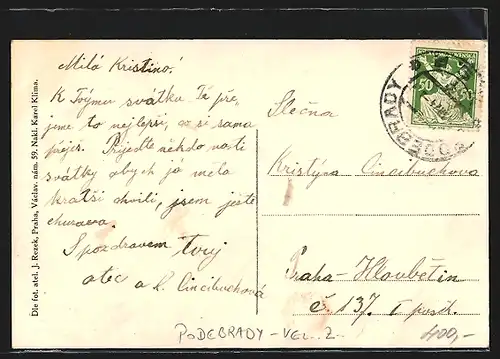 Milá Kristino!
K Tvýmu svátku Ti pře-
jeme to nejlepší, co si sama
přeješ. Přijeďte někdo na ti
svátky abych já měla
kratší chvíli, jsem ještě
churava.
S pozdravem tvůj
otec a L. Cincibuchová
Slečna
Kristýna Cincibuchova
Praha-Hloubětín
č. 137.
Die fot. atel. J. Rezek, Praha, Václav. nám. 59. Nakl. Karel Klíma.
50
PODEBRADY-VEL. Z.
400,-